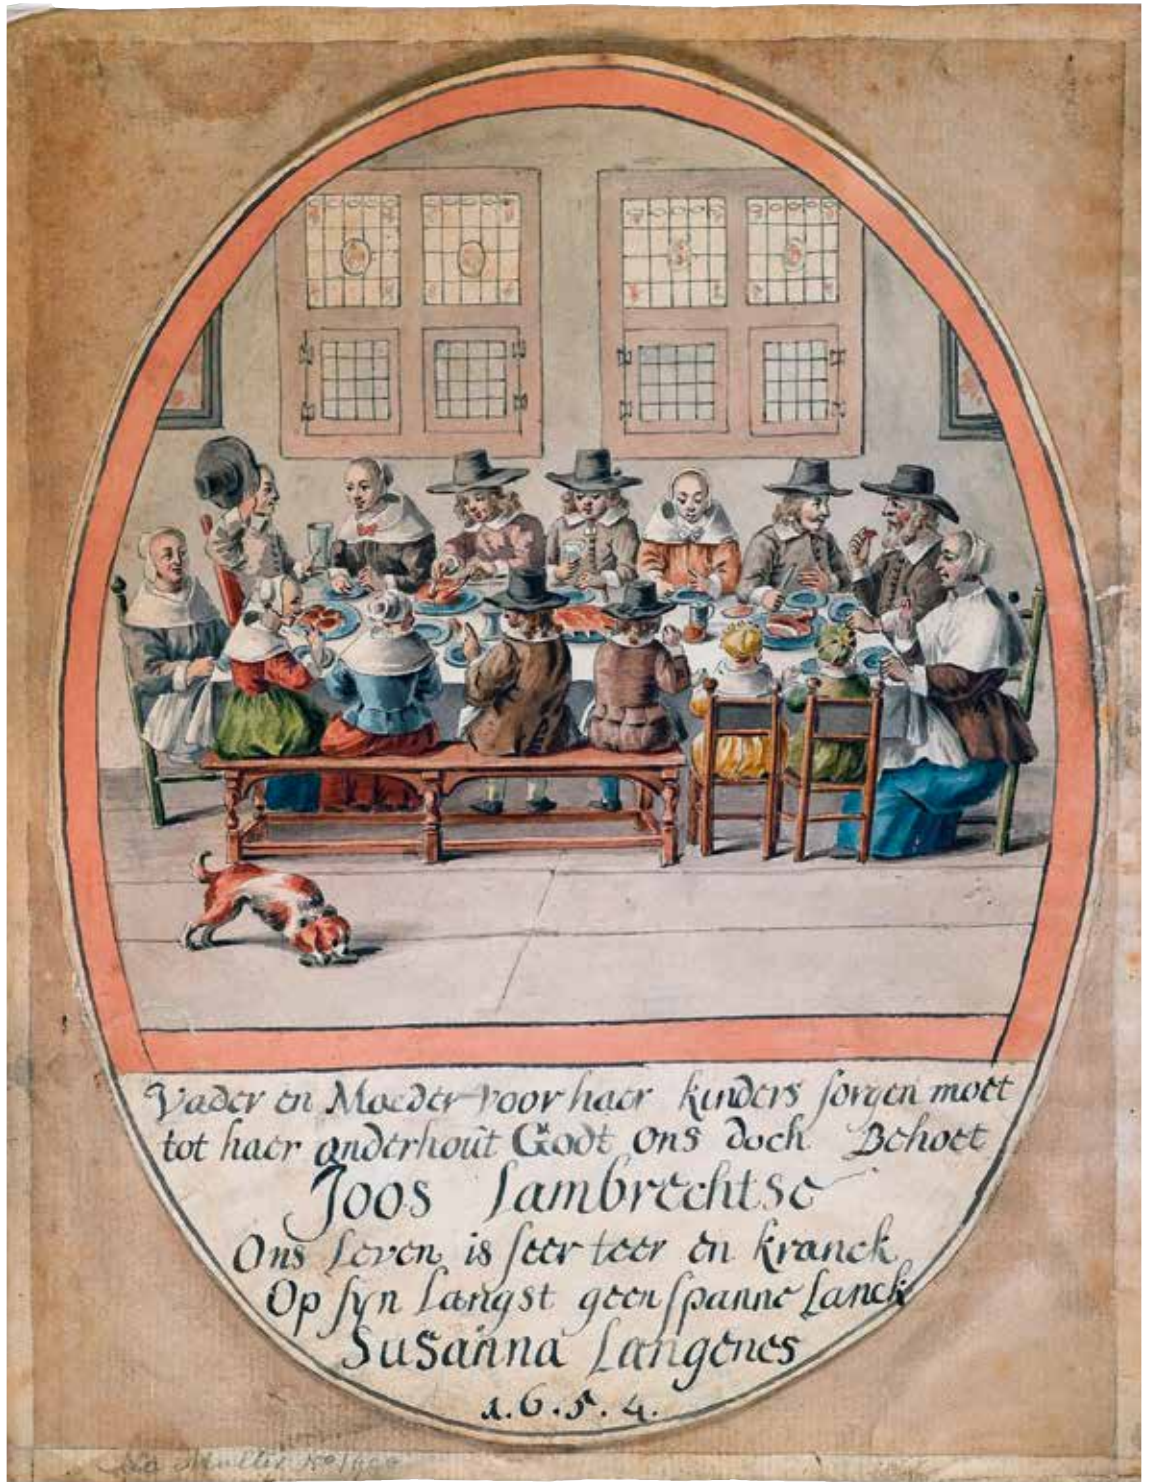 Vader en Moeder voor haer kinders sorgen moet
tot haer onderhout Godt ons doch Behoet
Joos Lambrechtse
Ons Leven is seer teer en kranck
Op syn Langst geen spanne Lanck
Susanna Langenes
1.6.5.4.
Muller